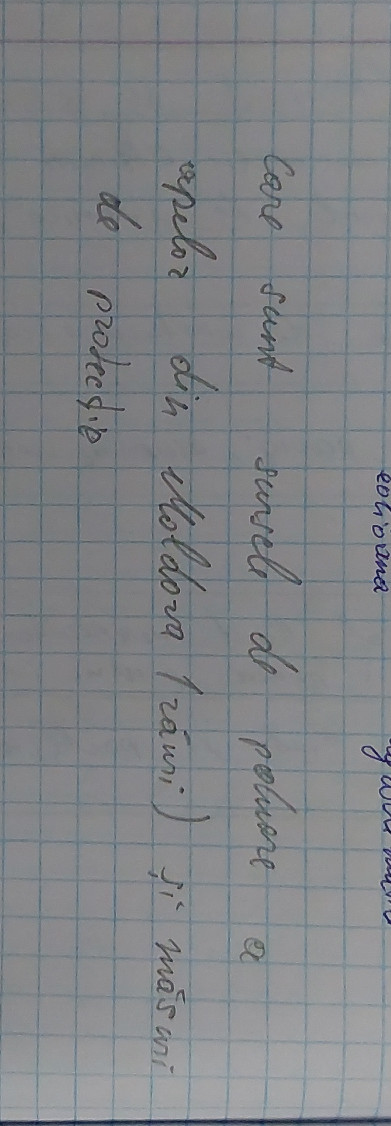 Care sunt sursele de poluare a
apelor din Moldova (râuri) și măsuri
de protecție